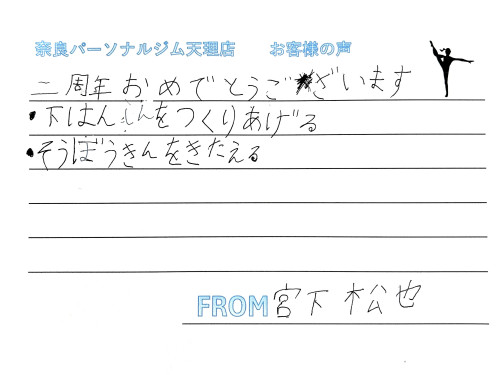 奈良パーソナルジム天理店 お客様の声
二周年おめでとうございます
・下はんしんをつくりあげる
・そうぼうきんをきたえる
FROM 宮下 松也